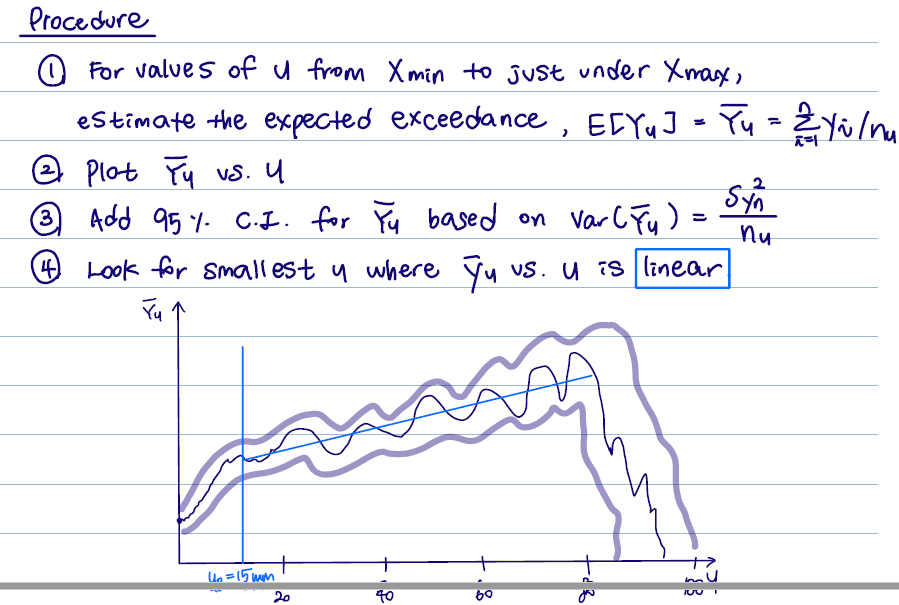 Procedure
① For values of u from Xmin to just under Xmax,
estimate the expected exceedance, E[Yu] = Ȳu = Σⁿᵢ₌₁ Yi/nu
② Plot Ȳu vs. u
③ Add 95% C.I. for Ȳu based on var(Ȳu) = S²yn / nu
④ Look for smallest u where Ȳu vs. u is linear
Ȳu
u
u₀=15mm
20 40 60 80 100